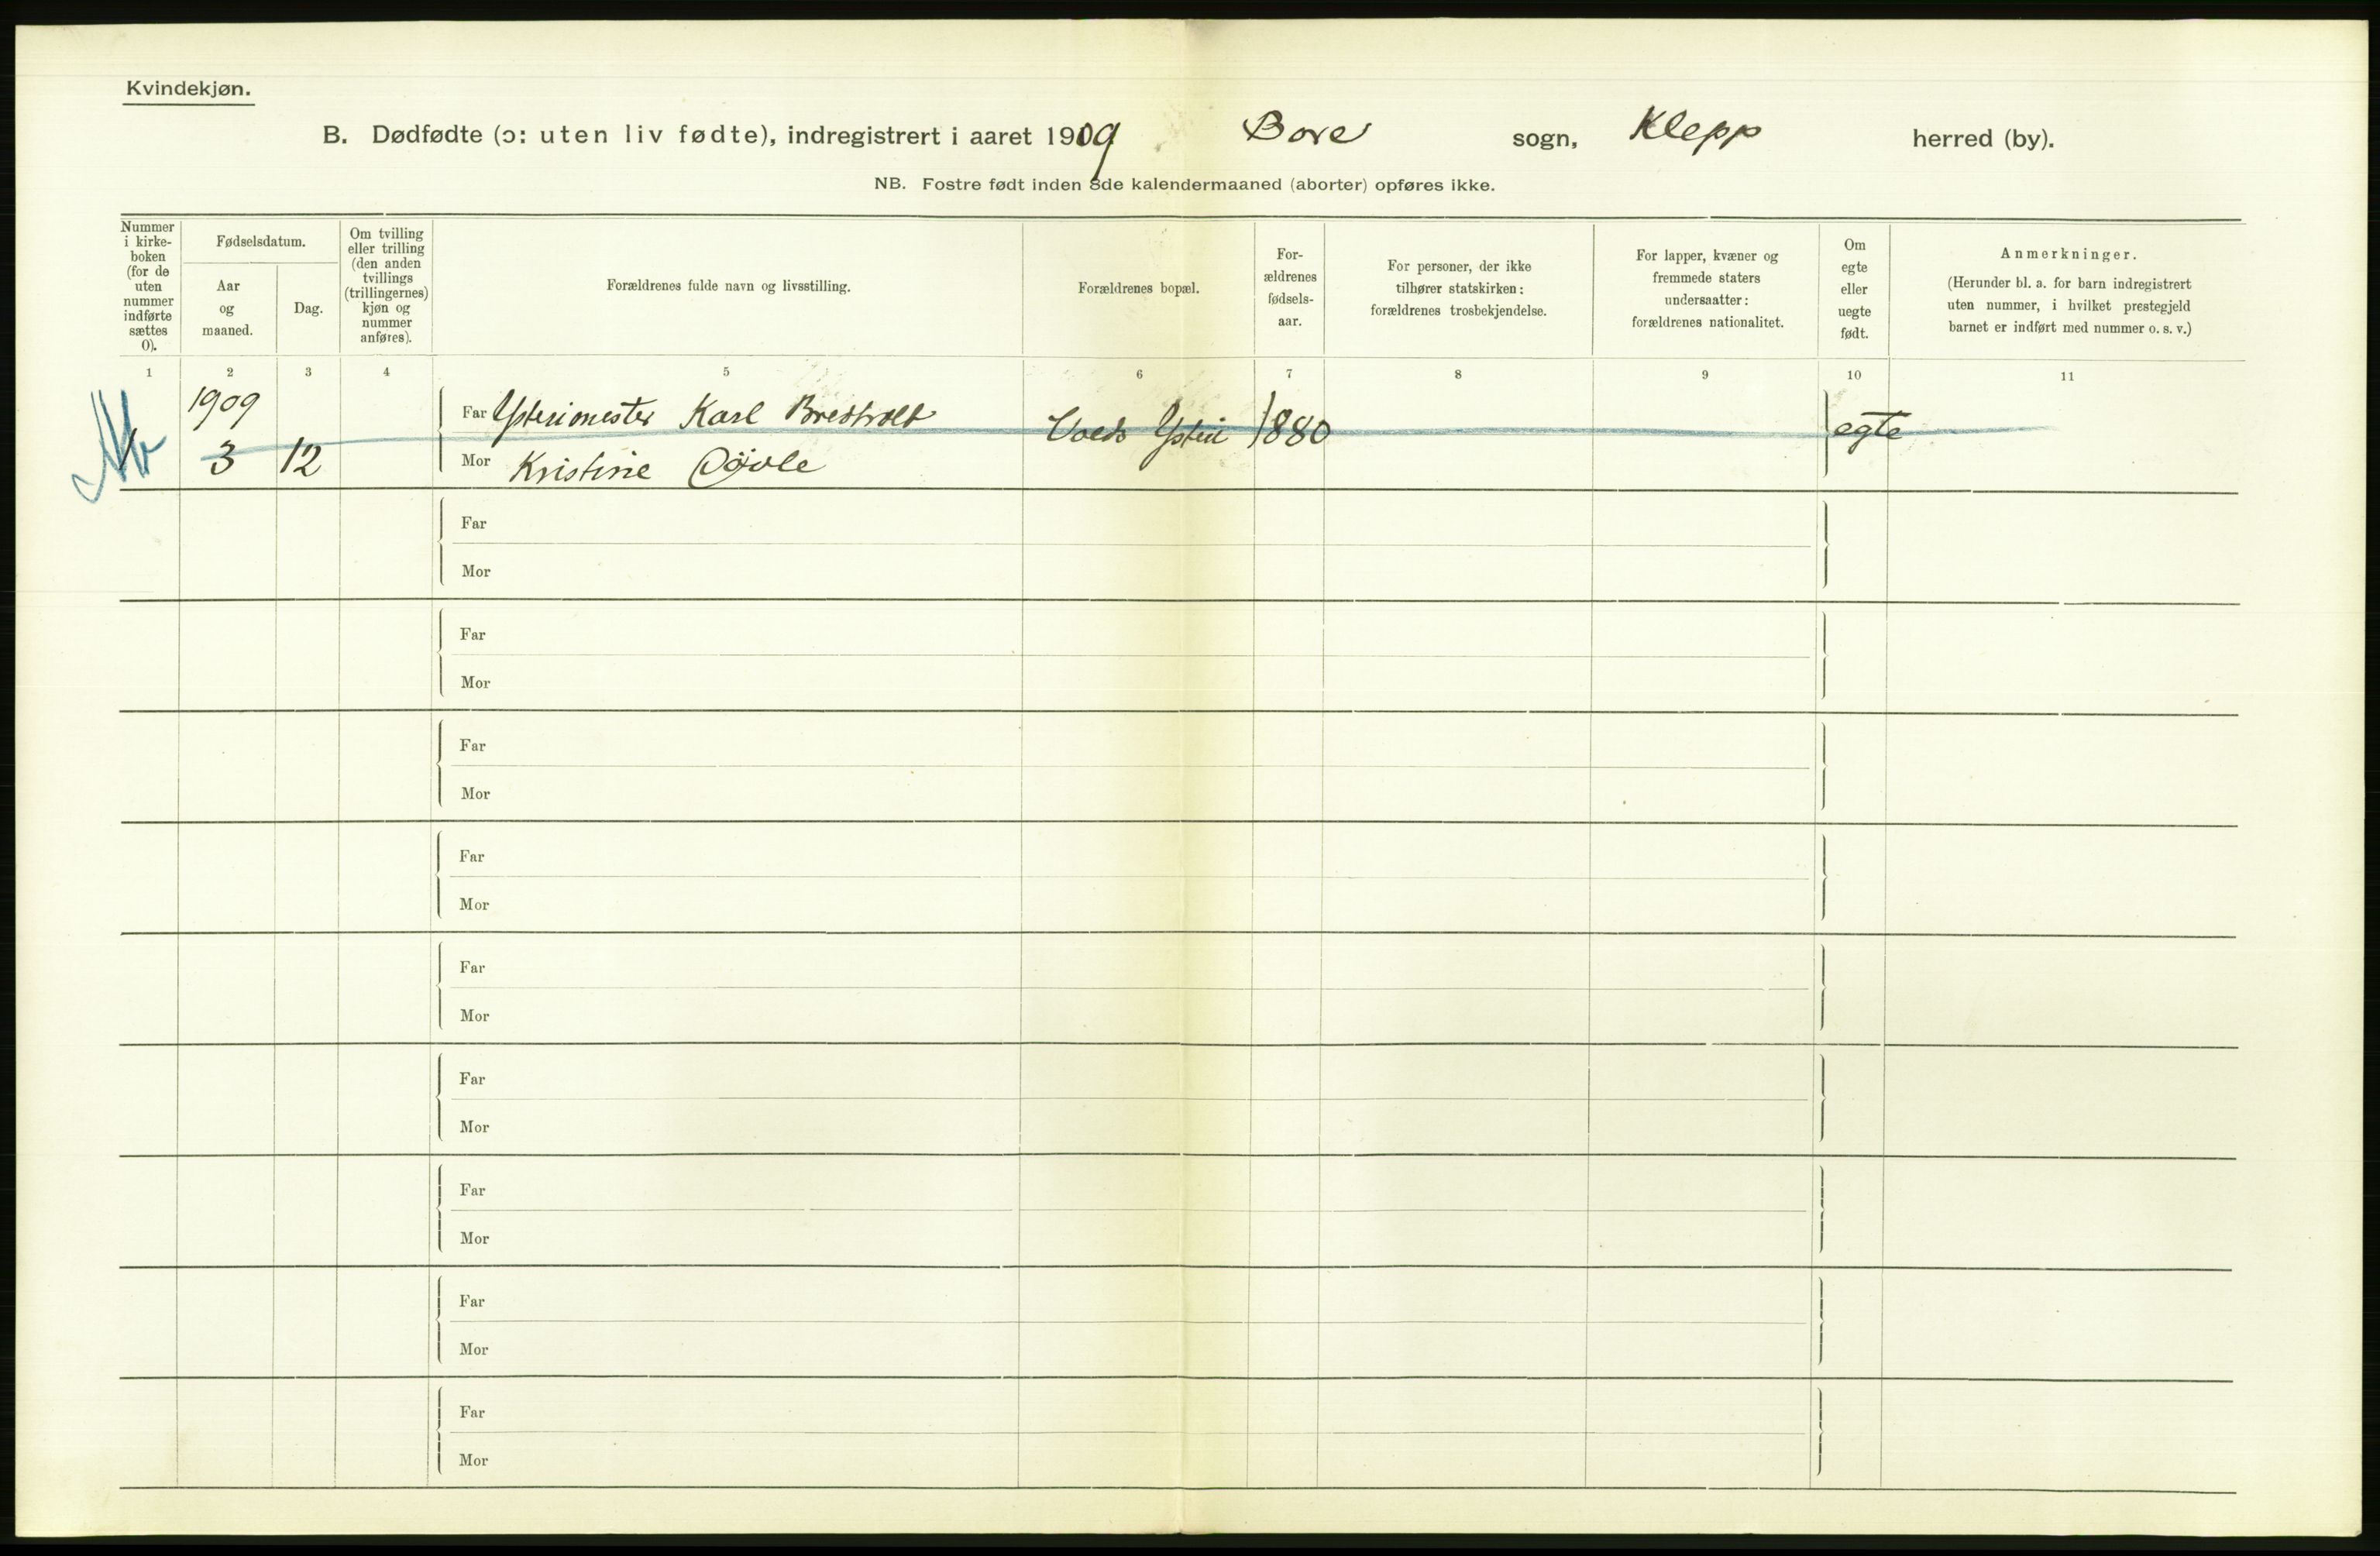 Kvindekjøn.
B. Dødfødte (ɔ: uten liv fødte), indregistrert i aaret 1909 Bore sogn, Klepp herred (by).
NB. Fostre født inden 8de kalendermaaned (aborter) opføres ikke.
Nummer i kirke-boken (for de uten nummer indførte sættes 0).
Fødselsdatum.
Aar og maaned.
Dag.
Om tvilling eller trilling (den anden tvillings (trillingernes) kjøn og nummer anføres).
Forældrenes fulde navn og livsstilling.
Forældrenes bopæl.
For-ældrenes fødsels-aar.
For personer, der ikke tilhører statskirken: forældrenes trosbekjendelse.
For lapper, kvæner og fremmede staters undersaatter: forældrenes nationalitet.
Om egte eller uegte født.
Anmerkninger.
(Herunder bl. a. for barn indregistrert uten nummer, i hvilket prestegjeld barnet er indført med nummer o. s. v.)
1 2 3 4 5 6 7 8 9 10 11
1909
Far Ysterimester Karl
1 3 12 Ysteri 1880 egte
Mor Kristine
Far
Mor
Far
Mor
Far
Mor
Far
Mor
Far
Mor
Far
Mor
Far
Mor
Far
Mor
Far
Mor